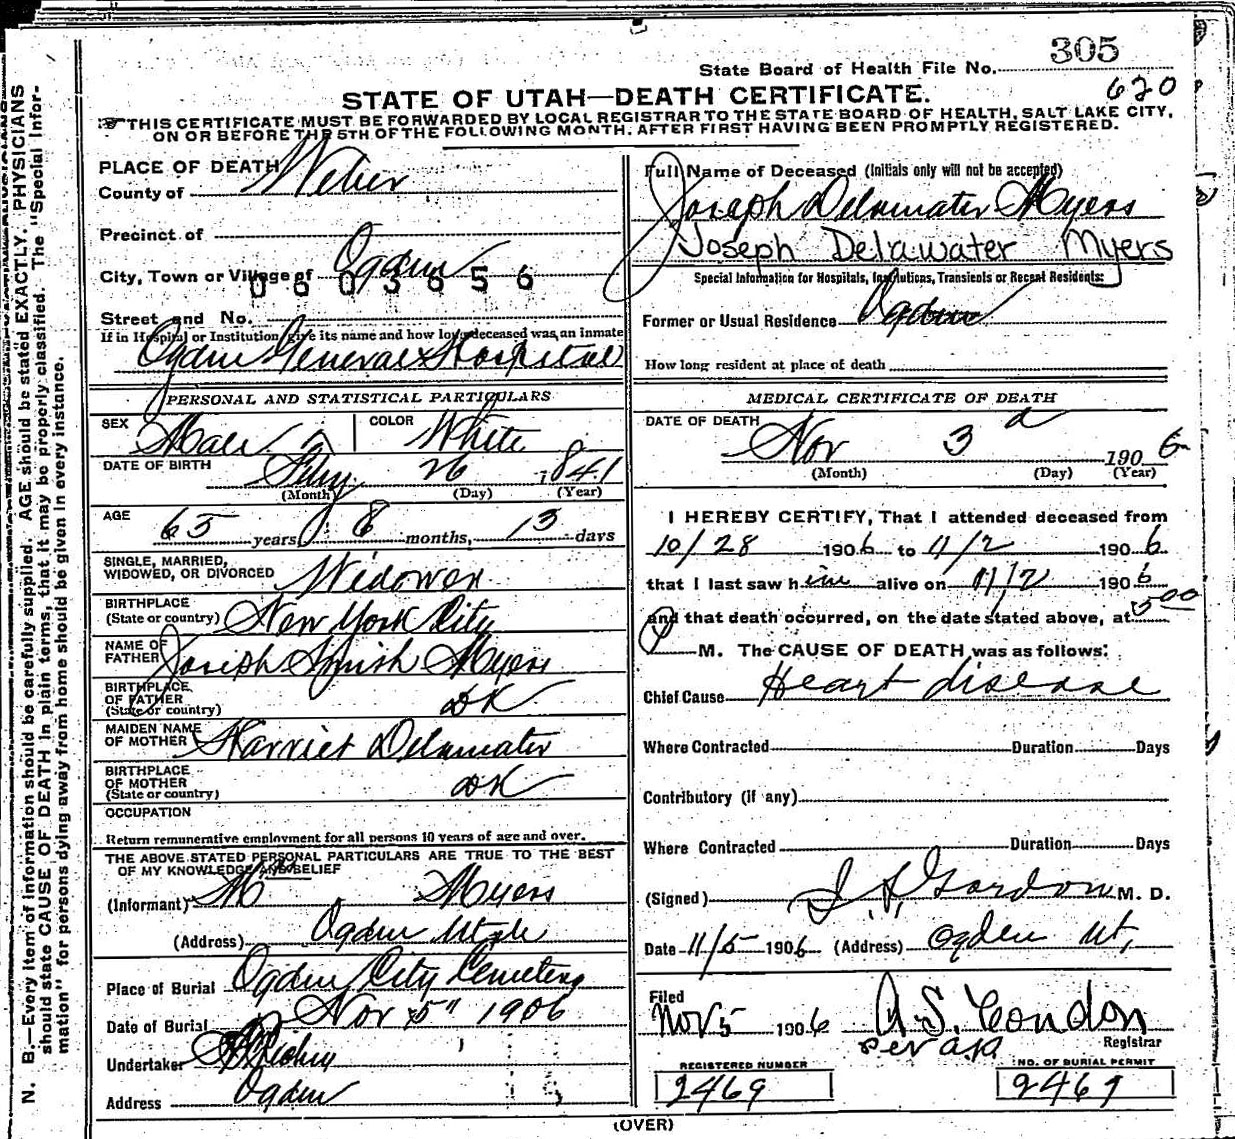 305
State Board of Health File No.
620
STATE OF UTAH—DEATH CERTIFICATE.
THIS CERTIFICATE MUST BE FORWARDED BY LOCAL REGISTRAR TO THE STATE BOARD OF HEALTH, SALT LAKE CITY,
ON OR BEFORE THE 5TH OF THE FOLLOWING MONTH, AFTER FIRST HAVING BEEN PROMPTLY REGISTERED.
N. B.—Every item of information should be carefully supplied. AGE should be stated EXACTLY. PHYSICIANS
should state CAUSE OF DEATH in plain terms, that it may be properly classified. The "Special Infor-
mation" for persons dying away from home should be given in every instance.
PLACE OF DEATH
County of Weber
Precinct of
City, Town or Village of Ogden
0603656
Street and No.
If in Hospital or Institution, give its name and how long deceased was an inmate
Ogden General Hospital
PERSONAL AND STATISTICAL PARTICULARS
SEX Male COLOR White
DATE OF BIRTH 26 1841
(Month) (Day) (Year)
AGE 65 years 8 months, 13 days
SINGLE, MARRIED,
WIDOWED, OR DIVORCED Widower
BIRTHPLACE
(State or country) New York City
NAME OF
FATHER Joseph Myers
BIRTHPLACE
OF FATHER
(State or country) DK
MAIDEN NAME
OF MOTHER Harriet Delamater
BIRTHPLACE
OF MOTHER
(State or country) DK
OCCUPATION
Return remunerative employment for all persons 10 years of age and over.
THE ABOVE STATED PERSONAL PARTICULARS ARE TRUE TO THE BEST
OF MY KNOWLEDGE AND BELIEF
(Informant) Myers
(Address) Ogden Utah
Place of Burial Ogden City Cemetery
Date of Burial Nov 5" 1906
Undertaker
Address Ogden
Full Name of Deceased (Initials only will not be accepted)
Joseph Delamater Myers
Joseph Delawater Myers
Special Information for Hospitals, Institutions, Transients or Recent Residents:
Former or Usual Residence Ogden
How long resident at place of death
MEDICAL CERTIFICATE OF DEATH
DATE OF DEATH
Nov 3 d 1906
(Month) (Day) (Year)
I HEREBY CERTIFY, That I attended deceased from
10/28 1906 to 11/2 1906
that I last saw him alive on 11/2 1906
and that death occurred, on the date stated above, at 5 00
P M. The CAUSE OF DEATH was as follows:
Chief Cause Heart disease
Where Contracted Duration Days
Contributory (if any)
Where Contracted Duration Days
(Signed) Gordon M. D.
Date 11/5 1906 (Address) Ogden Ut,
Filed
Nov 5 1906 A. S. Condon
per
Registrar
REGISTERED NUMBER
2469
NO. OF BURIAL PERMIT
2469
(OVER)